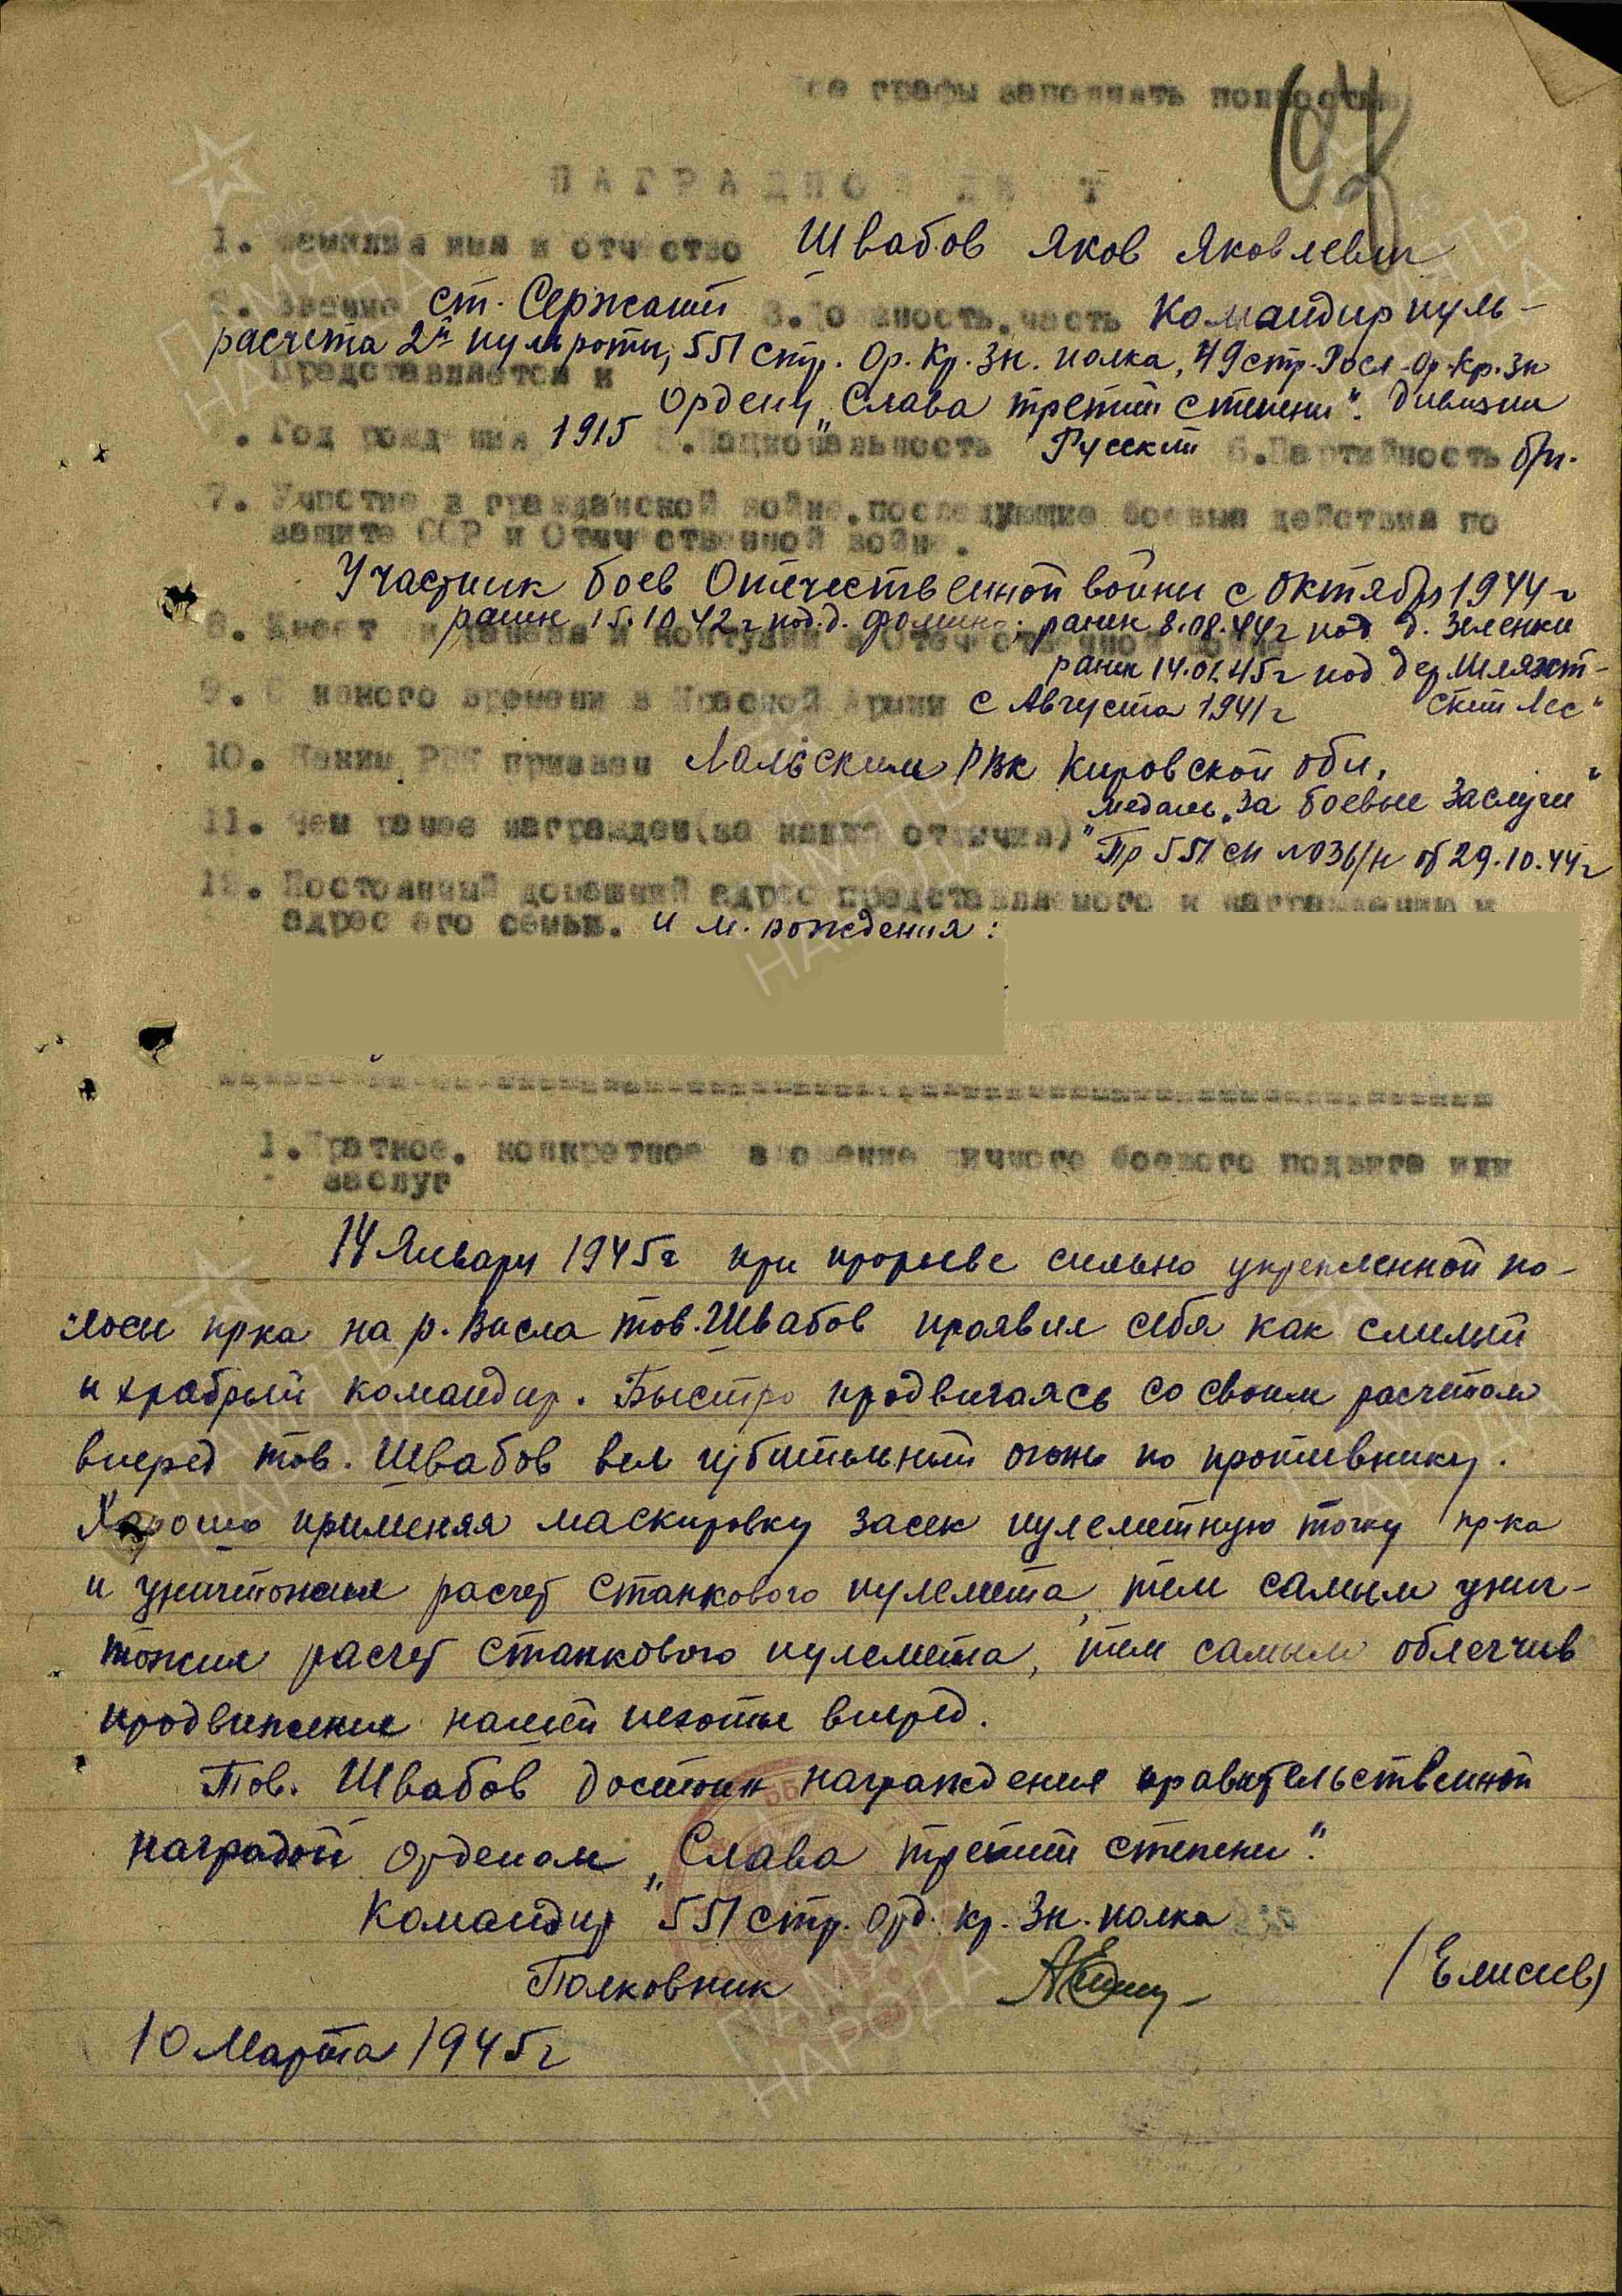 Все графы заполнять полностью
НАГРАДНОЙ ЛИСТ
1. Фамилия имя и отчество Швабов Яков Яковлевич
2. Звание ст. Сержант 3. Должность, часть Командир пуль-
расчета 2й пульроты, 551 стр. Ор. Кр. Зн. полка, 49 стр. Росл. Ор. Кр. Зн
Представляется к ордену „Слава третий степени". дивизии
4. Год рождения 1915 5. Национальность Русский 6. Партийность б/п.
7. Участие в гражданской войне, последующие боевые действия по
защите СССР и Отечественной войне.
Участник боев Отечественной войны с октября 1944 г
8. Имеет ли ранения и контузии в Отечественной войне
ранен 15.10.42 г под. д. Фомино; ранен 8.08.44 г под д. Зеленки
ранен 14.01.45 г под дер. Шляхет-
ский Лес"
9. С какого времени в Красной Армии с Августа 1941 г
10. Каким РВК призван Лальским РВК Кировской обл.
11. Чем ранее награжден (за какие отличия) медаль „За боевые заслуги"
Пр 551 сп №036/н от 29.10.44 г
12. Постоянный домашний адрес представляемого к награждению и
адрес его семьи. и м. рождения:
1. Краткое, конкретное изложение личного боевого подвига или
заслуг
14 Января 1945 г при прорыве сильно укрепленной по-
лосы пр-ка на р. Висла тов. Швабов проявил себя как смелый
и храбрый командир. Быстро продвигаясь со своим расчетом
вперед тов. Швабов вел губительный огонь по противнику.
Хорошо применяя маскировку засек пулеметную точку пр-ка
и уничтожил расчет станкового пулемета, тем самым унич-
тожил расчет станкового пулемета, тем самым облегчив
продвижение нашей пехоты вперед.
Тов. Швабов достоин награждения правительственной
наградой орденом „Слава третий степени".
Командир 551 стр. орд. Кр. Зн. полка
Полковник (Елисеев)
10 Марта 1945 г